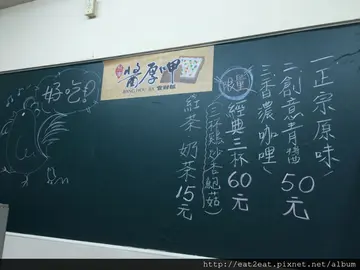 好吃!
醬厚呷
一正宗原味
二創意青醬
三香濃咖哩
50元
經典三杯60元
(三杯雞炒杏鮑菇)
紅茶 奶茶15元
http://eat2eat.pixnet.net/album